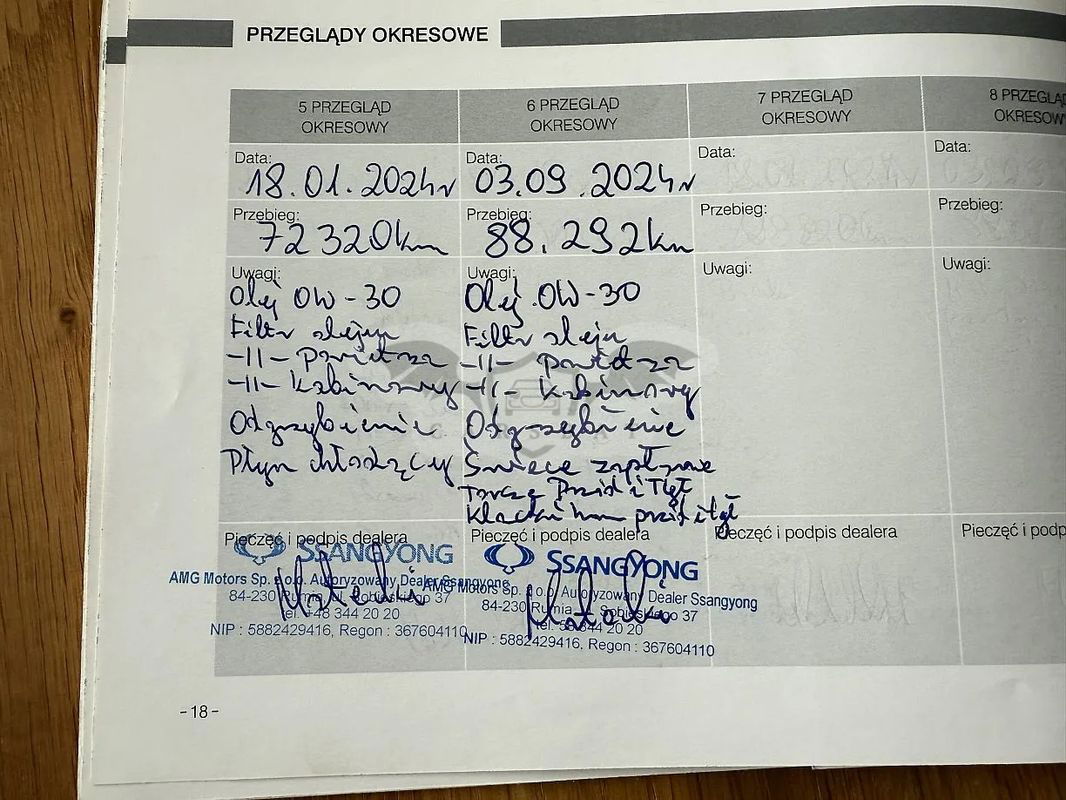 PRZEGLĄDY OKRESOWE
5 PRZEGLĄD
OKRESOWY
Data:
18.01.2024r
Przebieg:
72320km
Uwagi:
Olej 0W-30
Filtr oleju
-11- Powietrza
-11- kabinowy
Odgrzybienie
Płyn chłodzący
Pieczęć i podpis dealera
SSANGYONG
AMG Motors Sp. z o.o. Autoryzowany Dealer Ssangyong
84-230 Rumia, ul. Sobieskiego 37
tel. +48 344 20 20
NIP : 5882429416, Regon : 367604110
6 PRZEGLĄD
OKRESOWY
Data:
03.09.2024r
Przebieg:
88.292km
Uwagi:
Olej 0W-30
Filtr oleju
-11- powietrza
-11- kabinowy
Odgrzybienie
Świece zapłonowe
Tarcze Przód i Tył
Klocki ham przód i tył
Pieczęć i podpis dealera
SSANGYONG
AMG Motors Sp. z o.o. Autoryzowany Dealer Ssangyong
84-230 Rumia, Sobieskiego 37
tel. 58 344 20 20
NIP : 5882429416, Regon : 367604110
7 PRZEGLĄD
OKRESOWY
Data:
Przebieg:
Uwagi:
Pieczęć i podpis dealera
8 PRZEGLĄD
OKRESOWY
Data:
Przebieg:
Uwagi:
Pieczęć i podp
-18-